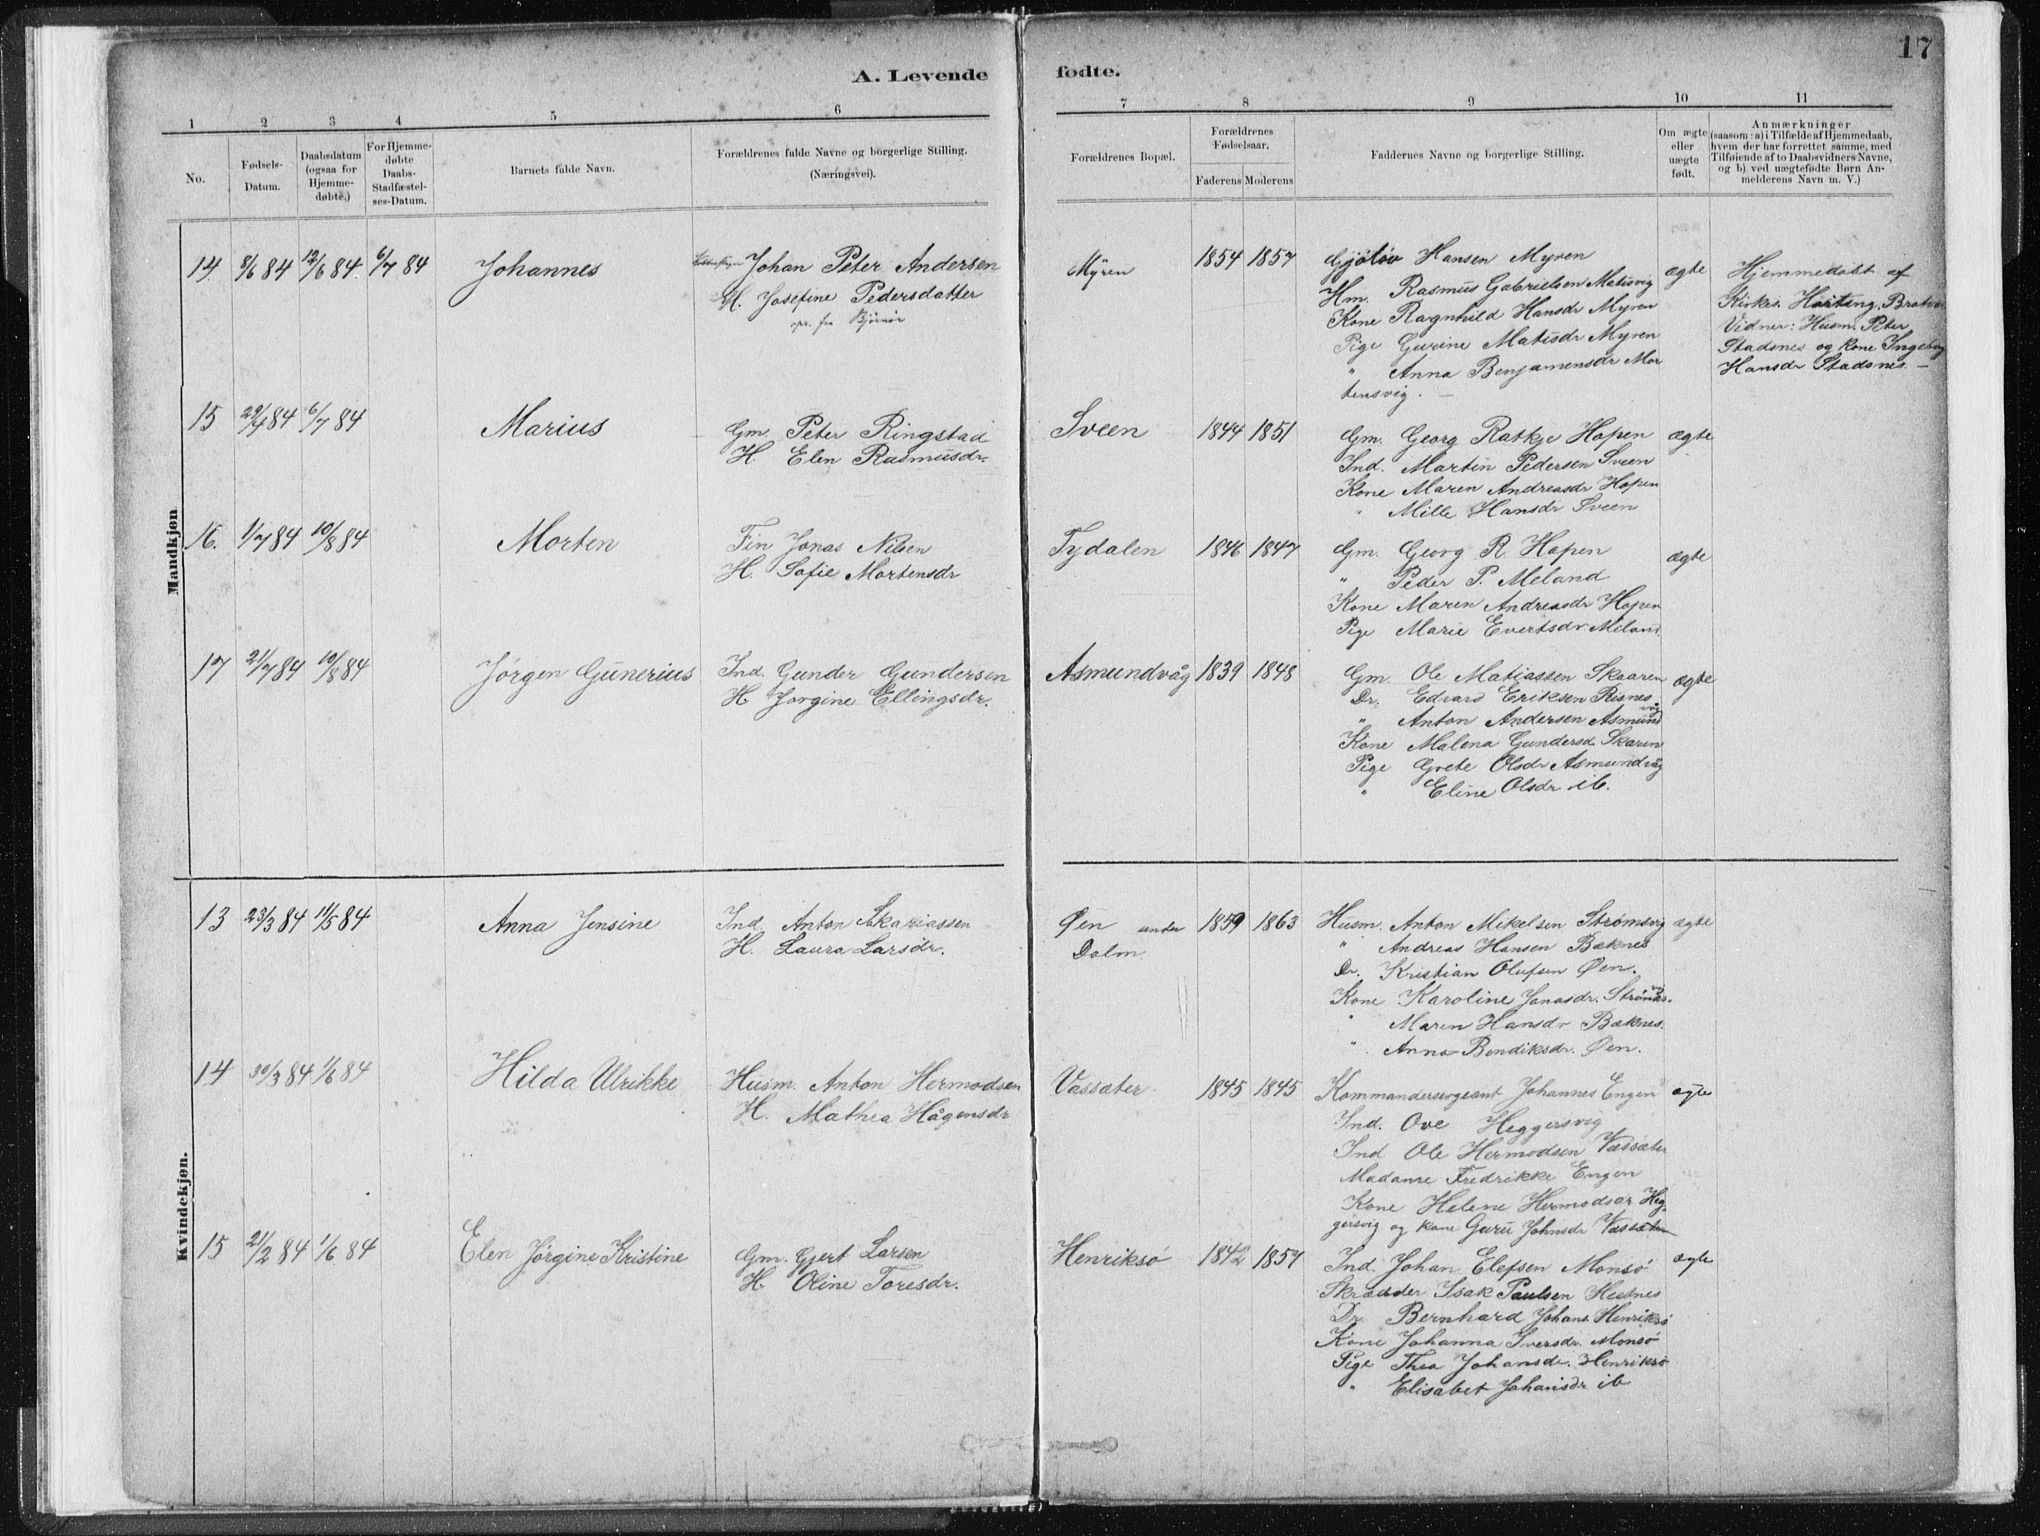 17
A. Levende fødte.
1 2 3 4 5 6 7 8 9 10 11
No.
Fødsels-Datum.
Daabsdatum (ogsaa for Hjemme-døbte,)
For Hjemme-døbte Daabs-Stadfæstel-ses-Datum.
Barnets fulde Navn.
Forældrenes fulde Navne og borgerlige Stilling.
(Næringsvei).
Forældrenes Bopæl.
Forældrenes Fødselsaar.
Faderens Moderens
Faddernes Navne og borgerlige Stilling.
Om ægte eller uægte født.
Anmærkninger
(saasom: a) i Tilfælde af Hjemmedaab,
hvem der har forrettet samme, med
Tilføiende af to Daabsvidners Navne,
og b) ved uægtefødte Børn An-
melderens Navn m. V.)
Mandkjøn
14. 8/6 84 12/6 84. 6/7 84 Johannes
Johan Peter Andersen
H. Josefine Pedersdatter
Myren 1854 1857
Gjøløv Hansen Myren
Hm. Rasmus Gabrielsen Matisvig
Kone Ragnhild Hansdr Myren
Pige Gurine Matisdr Myren
" Anna Benjamensdr Mor
tensvig.
ægte
Hjemmedøbt af
Kirks. Hartang, Bratv
Vidner: Husm. Peter
Stadsnes og kone Ingeborg
Hansdr Stadsnes.
15 29/4 84 6/7 84 Marius
Gm. Peter Ringstad
H. Elen Rasmusdr.
Sveen 1844 1851
Gm. Georg Ratkje Hopen
Ind. Martin Pedersen Sveen
Kone Maren Andreasdr Hopen
" Mille Hansdr Sveen
ægte
16. 1/7 84 10/8 84 Morten
Fin Jonas Nilsen
H. Sofie Mortensdr
Tydalen 1846 1847
Gm. Georg R. Hopen
" Peder P. Meland
Kone Maren Andreasdr Hopen
Pige Marie Evertsdr Meland
ægte
17 21/7 84 10/8 84 Jørgen Gunerius
Ind. Gunder Gundersen
H. Jorgine Ellingsdr.
Asmundvåg 1839 1848
Gm. Ole Matiassen Skaaren
Dr. Edvard Eriksen Risnes
" Anton Andersen Asmund
våg
Kone Malena Gundersd. Skaren
Pige Grete Olsdr Asmundvåg
" Eline Olsdr ib.
ægte
Kvindekjøn.
13 23/3 84 11/5 84 Anna Jensine
Ind. Anton Skariassen
H. Laura Larsdr.
Øen under
Dolm. 1859 1863
Husm. Anton Mikelsen Strømsvig
" Andreas Hansen Bæknes
Dr. Kristian Olufsen Øen.
Kone Karoline Jonasdr. Strøms.
" Maren Hansdr Bæknes.
" Anna Bendiksdr. Øen.
ægte
14 30/3 84 1/6 84 Hilda Ulrikke
Husm. Anton Hermodsen
H. Mathea Hågensdr
Vassæter 1845 1845
Kommandersergeant Johannes Engen
Ind. Ove Heggersvig
Ind Ole Hermodsen Vassæter
Madame Fredrikke Engen
Kone Helene Hermodsdr Heg-
gersvig og kone Guru Johnsdr Vassæter
ægte
15 21/2 84 1/6 84 Elen Jørgine Kristine
Gm. Gjert Larsen
H. Oline Toresdr.
Henriksø 1842 1857
Ind. Johan Elefsen Monsø
Skrædder Isak Paulsen Hestnes
Dr. Bernhard Johans. Henriksø
Kone Johanna Iversdr. Monsø
Pige Thea Johansdr. Henriksø
" Elisabet Johansdr ib
ægte